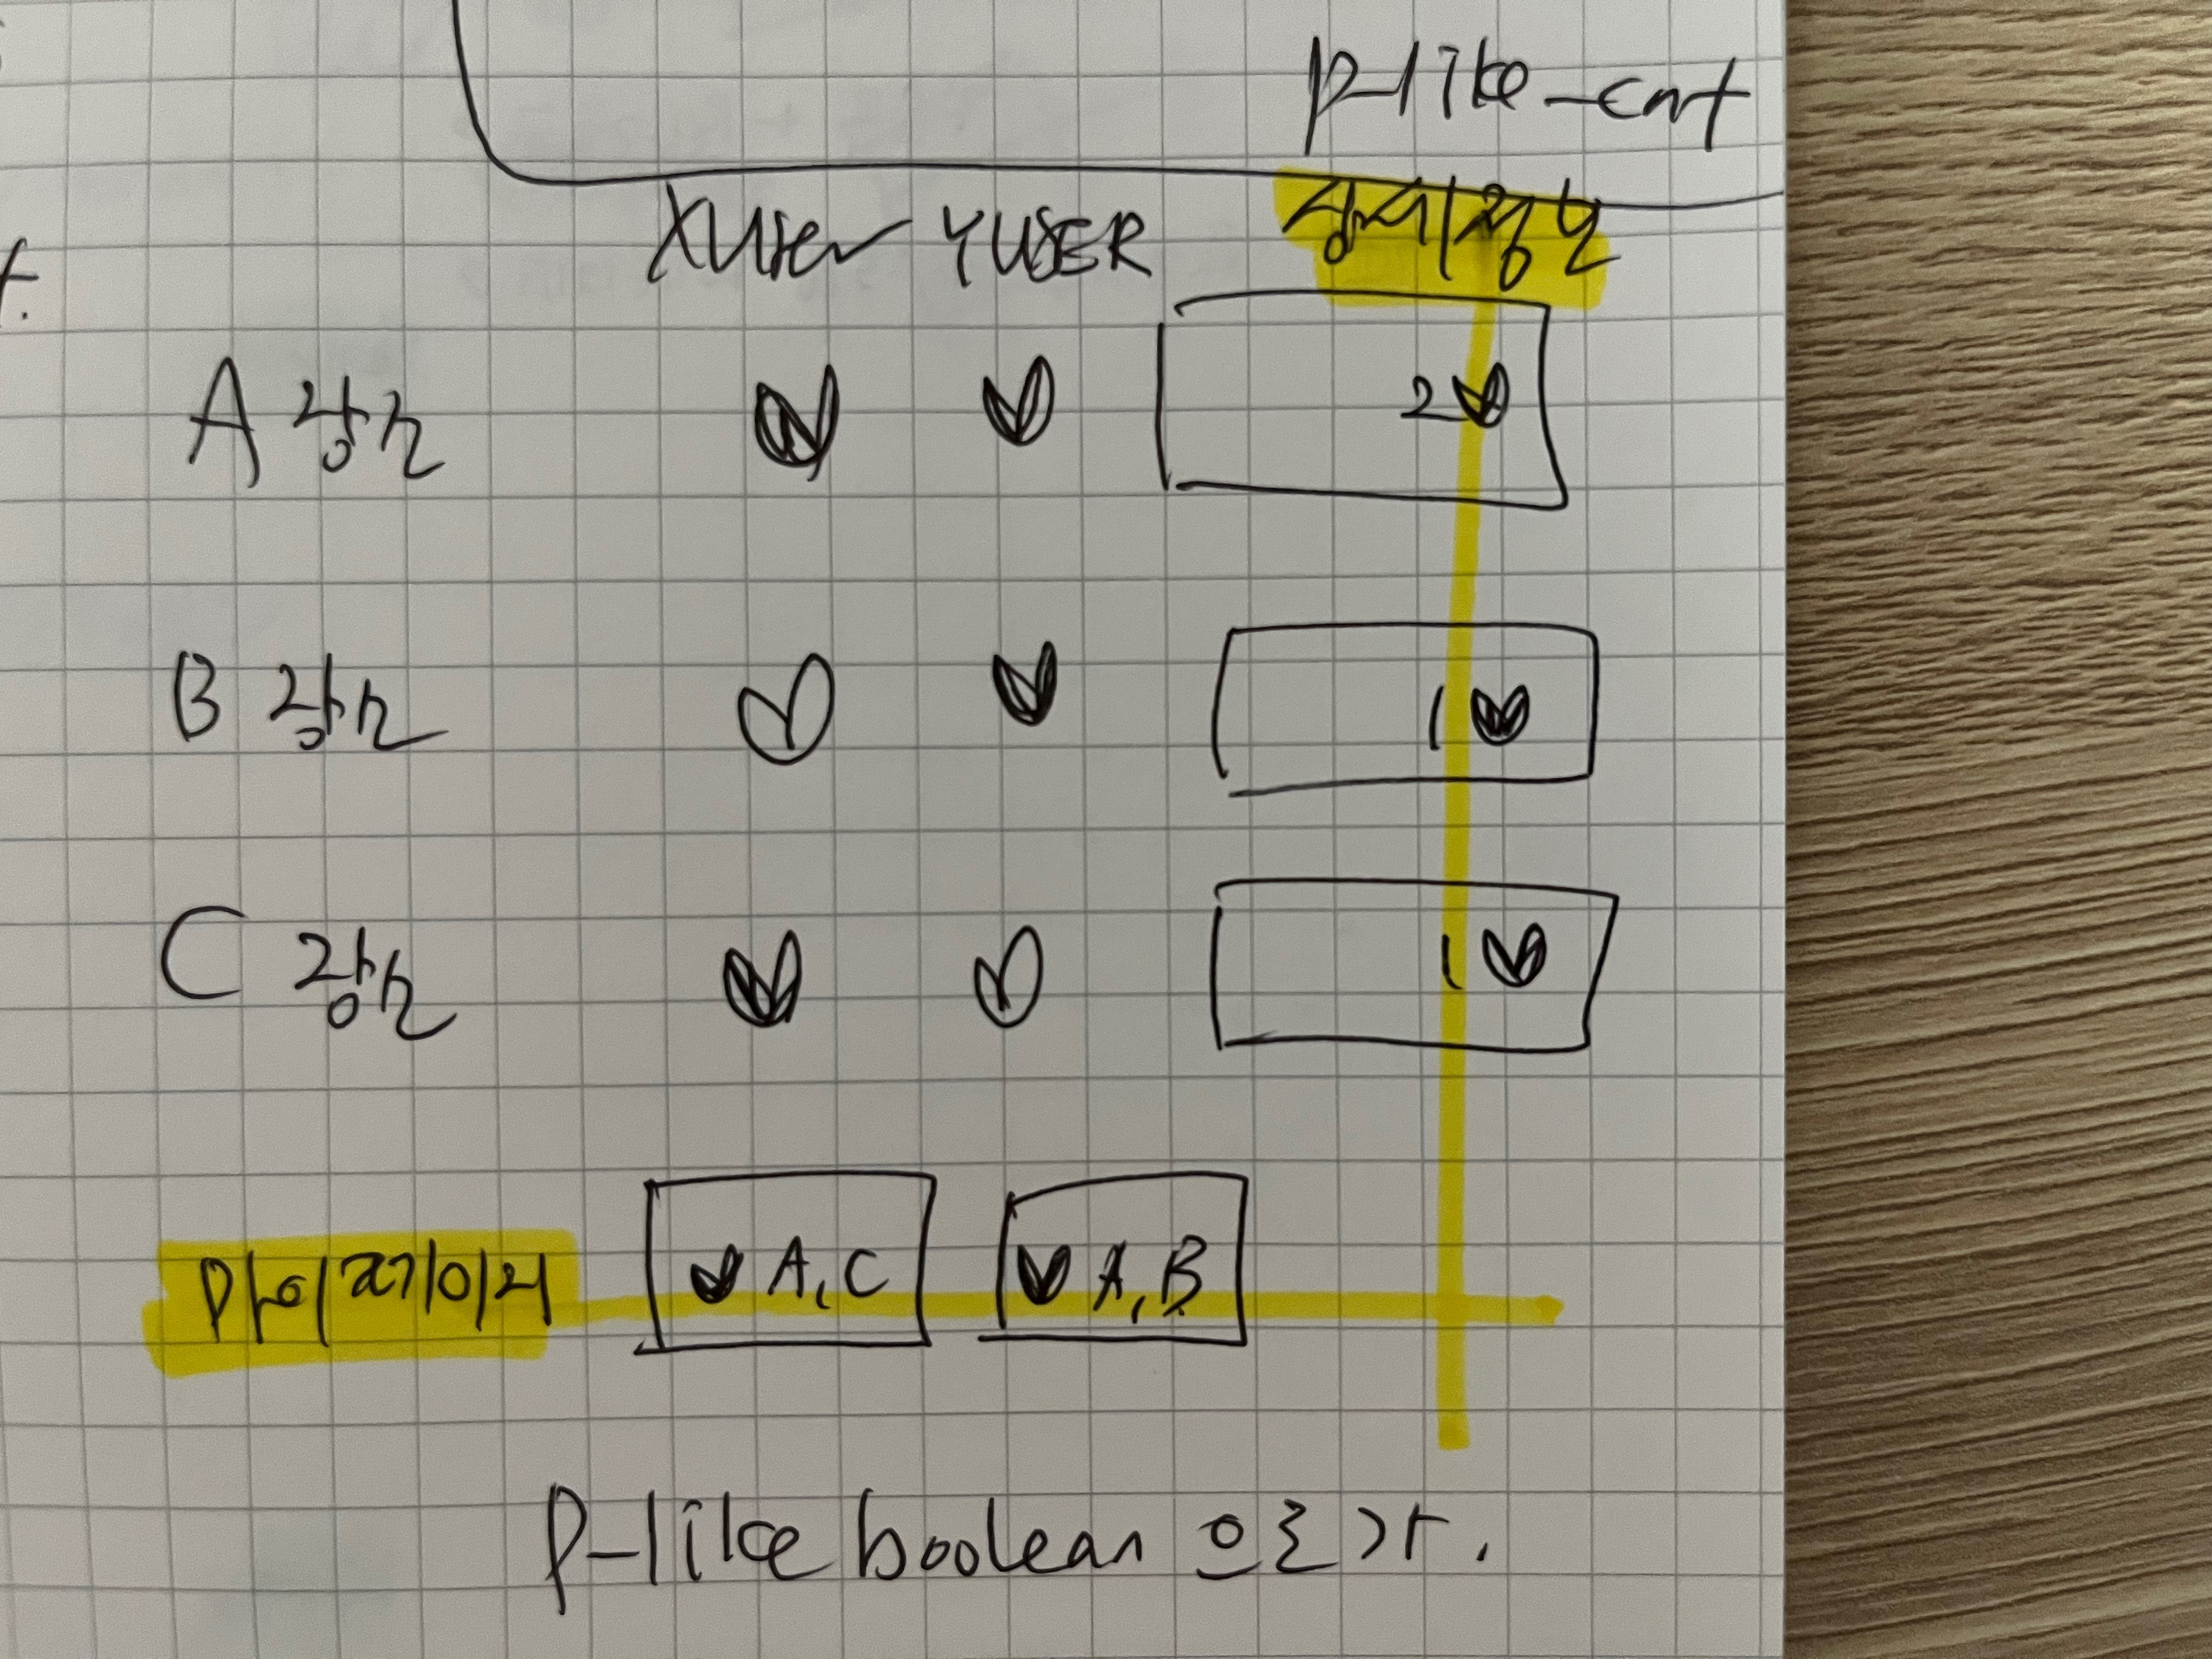 p-like-cnt
XUser YUSER
A 강소
2
B 강소
1
C 강소
1
마이페이지
A,C
A,B
P-like boolean 으로 가.